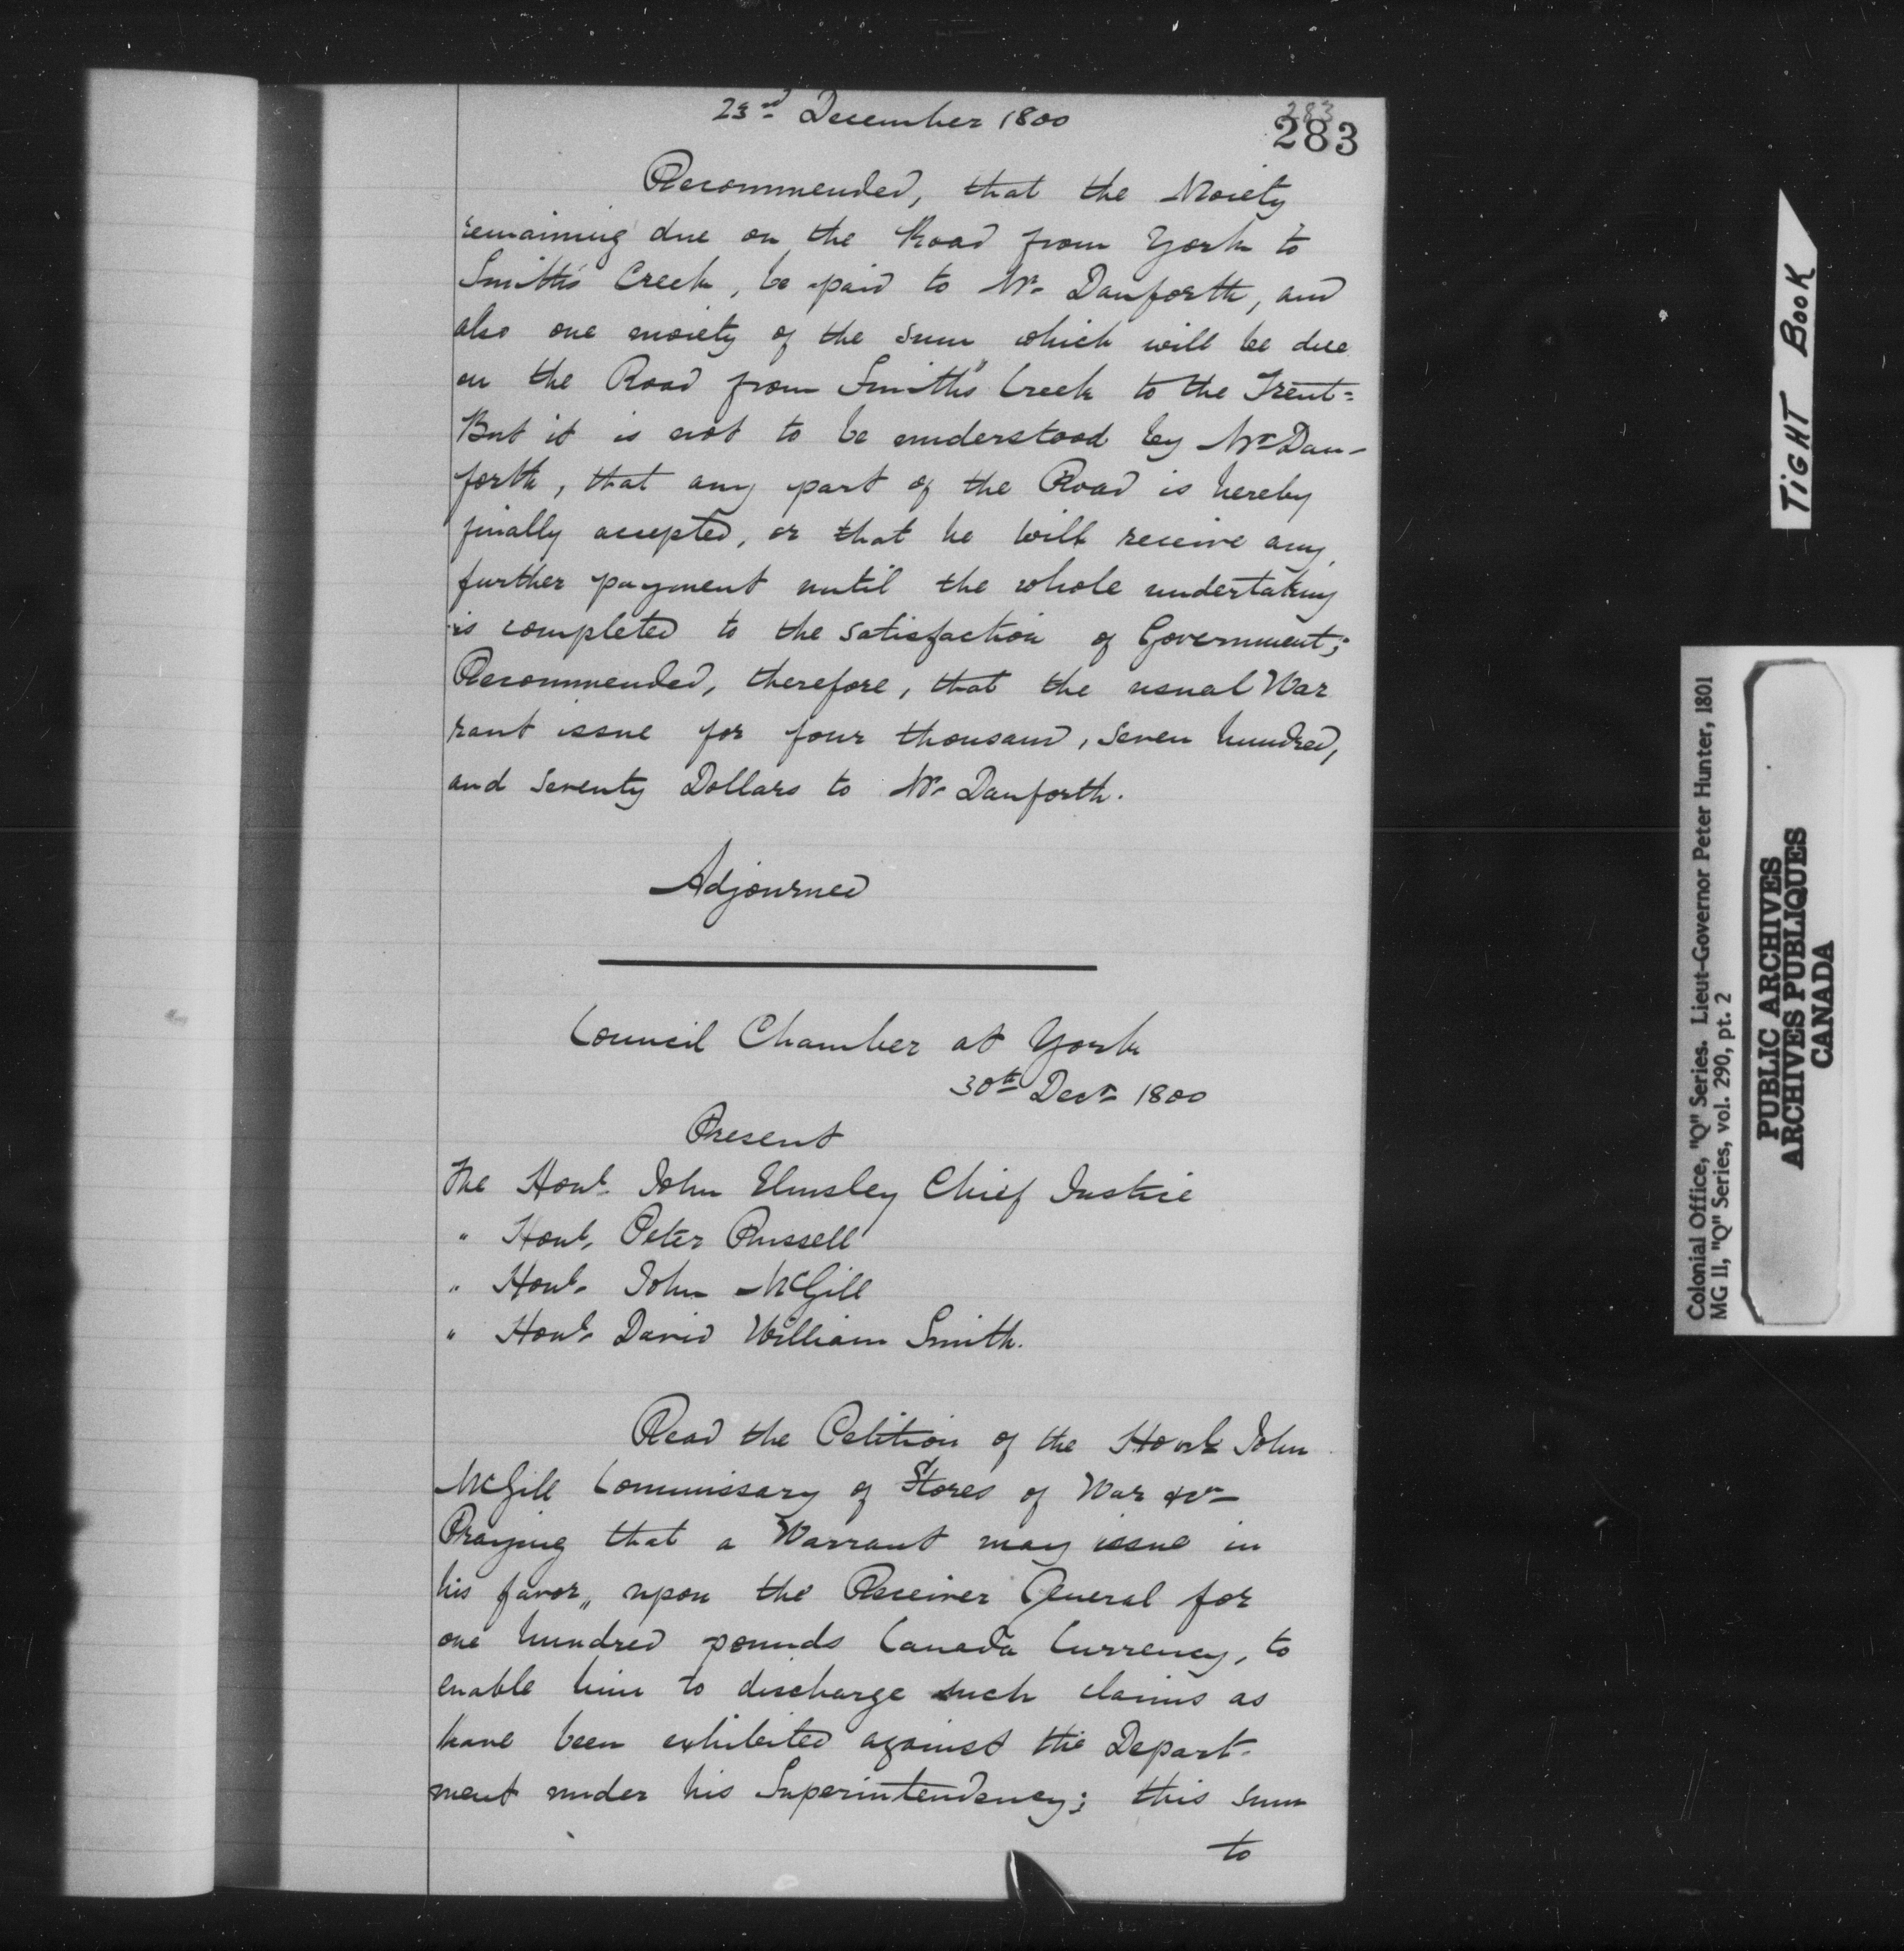 23rd December 1800
283
283
Recommended, that the Moiety
remaining due on the Road from York to
Smith's Creek, be paid to Mr. Danforth, and
also one moiety of the sum which will be due
on the Road from Smith's Creek to the Trent=
But it is not to be understood by Mr Dan-
forth, that any part of the Road is hereby
finally accepted, or that he will receive any
further payment until the whole undertaking
is completed to the satisfaction of Government;
Recommended, therefore, that the usual War
rant issue for four thousand, seven hundred,
and seventy Dollars to Mr. Danforth.
Adjourned
Council Chamber at York
30th Decr 1800
Present
The Honl. John Elmsley Chief Justice
" Honl. Peter Russell
" Honl. John McGill
" Honl. David William Smith.
Read the Petition of the Honl John
McGill Commissary of Stores of War &c
Praying that a Warrant may issue in
his favor,, upon the Receiver General for
one hundred pounds Canada Currency, to
enable him to discharge such claims as
have been exhibited against the Depart-
ment under his Superintendency; this sum
to
TIGHT BOOK
Colonial Office, "Q" Series. Lieut-Governor Peter Hunter, 1801
MG 11, "Q" Series, vol. 290, pt. 2
PUBLIC ARCHIVES
ARCHIVES PUBLIQUES
CANADA